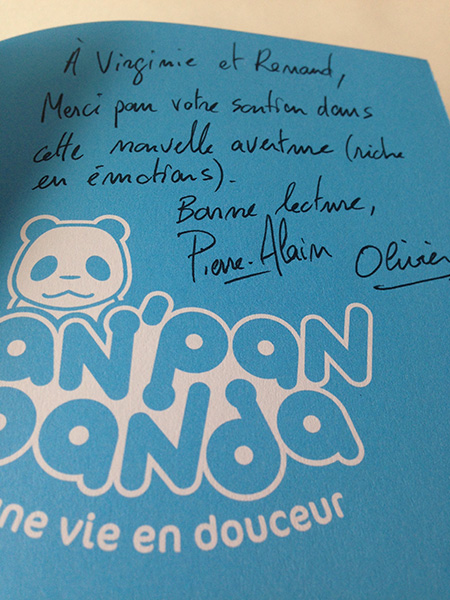 À Virginie et Renaud,
Merci pour votre soutien dans
cette nouvelle aventure (riche
en émotions).
Bonne lecture,
Pierre-Alain Olivier
AN'PAN
PANDA
une vie en douceur